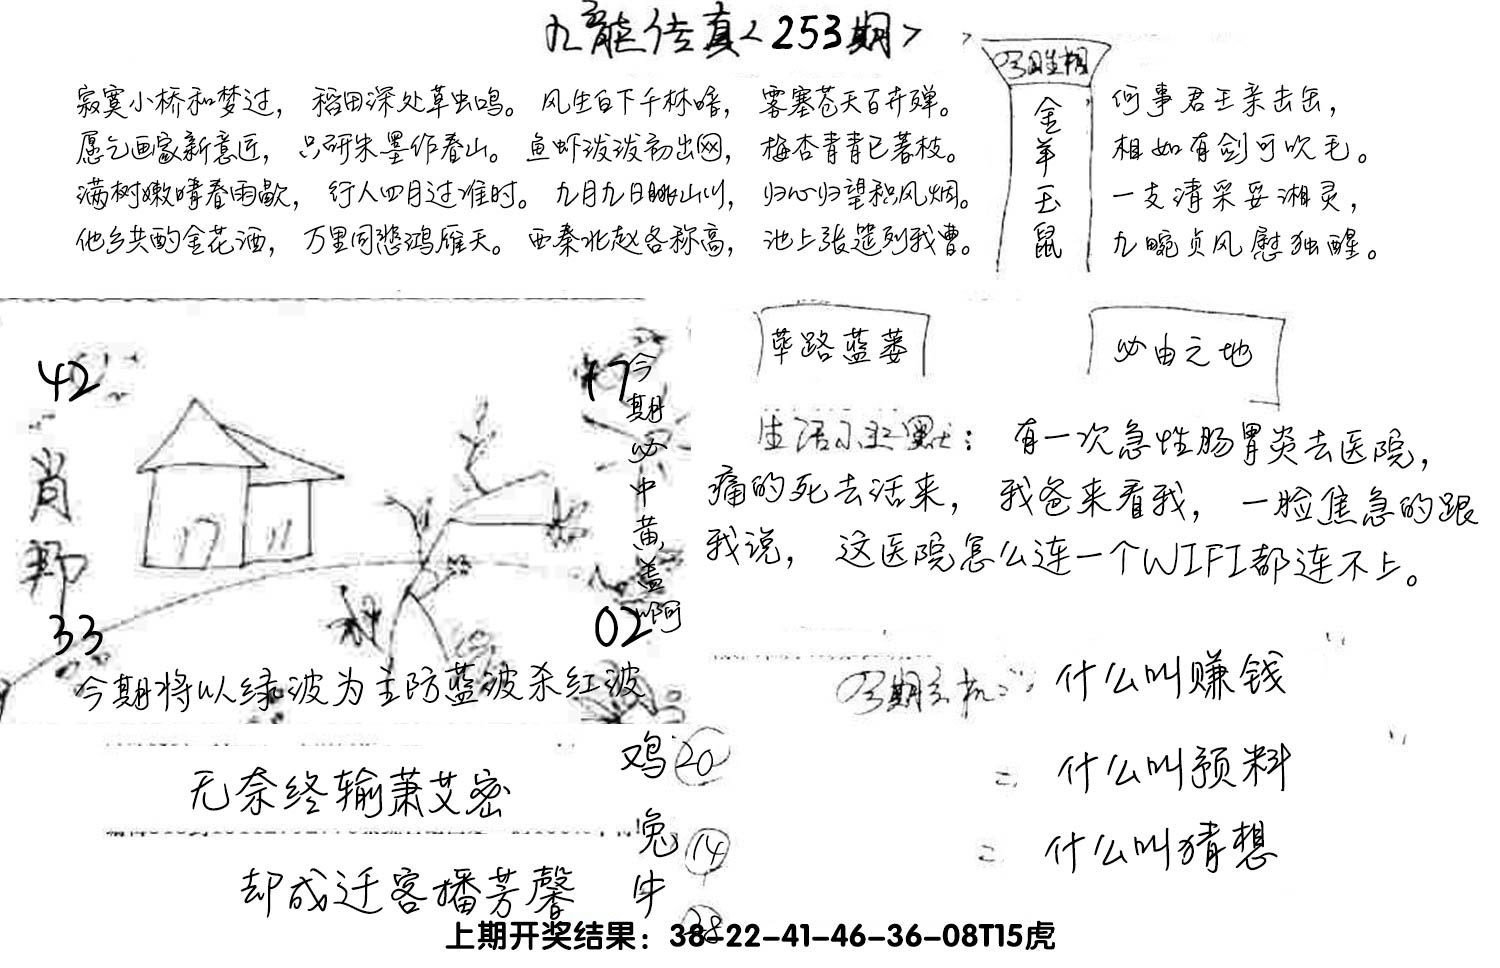 九龍传真<253期>
寂寞小桥和梦过，稻田深处草虫鸣。风生白下千林暗，雾塞苍天百卉殚。
愿乞画家新意匠，只研朱墨作春山。鱼虾泼泼初出网，梅杏青青已著枝。
满树嫩晴春雨歇，行人四月过淮时。九月九日眺山川，归心归望积风烟。
他乡共酌金花酒，万里同悲鸿雁天。西秦北赵各称高，池上张筵列我曹。
今期生相
金羊玉鼠
何事君王亲击缶，
相如有剑可吹毛。
一支清采妥湘灵，
九畹贞风慰独醒。
42
17
肖
33
02
今期必中黄盖啊
今期将以绿波为主防蓝波杀红波
荜路蓝蒌
必由之地
生活小幽默：有一次急性肠胃炎去医院，
痛的死去活来，我爸来看我，一脸焦急的跟
我说，这医院怎么连一个WIFI都连不上。
今期玄机：什么叫赚钱
什么叫预料
什么叫猜想
无奈终输萧艾密
却成迁客播芳馨
鸡 20
兔 14
牛 38
上期开奖结果：38-22-41-46-36-08T15虎